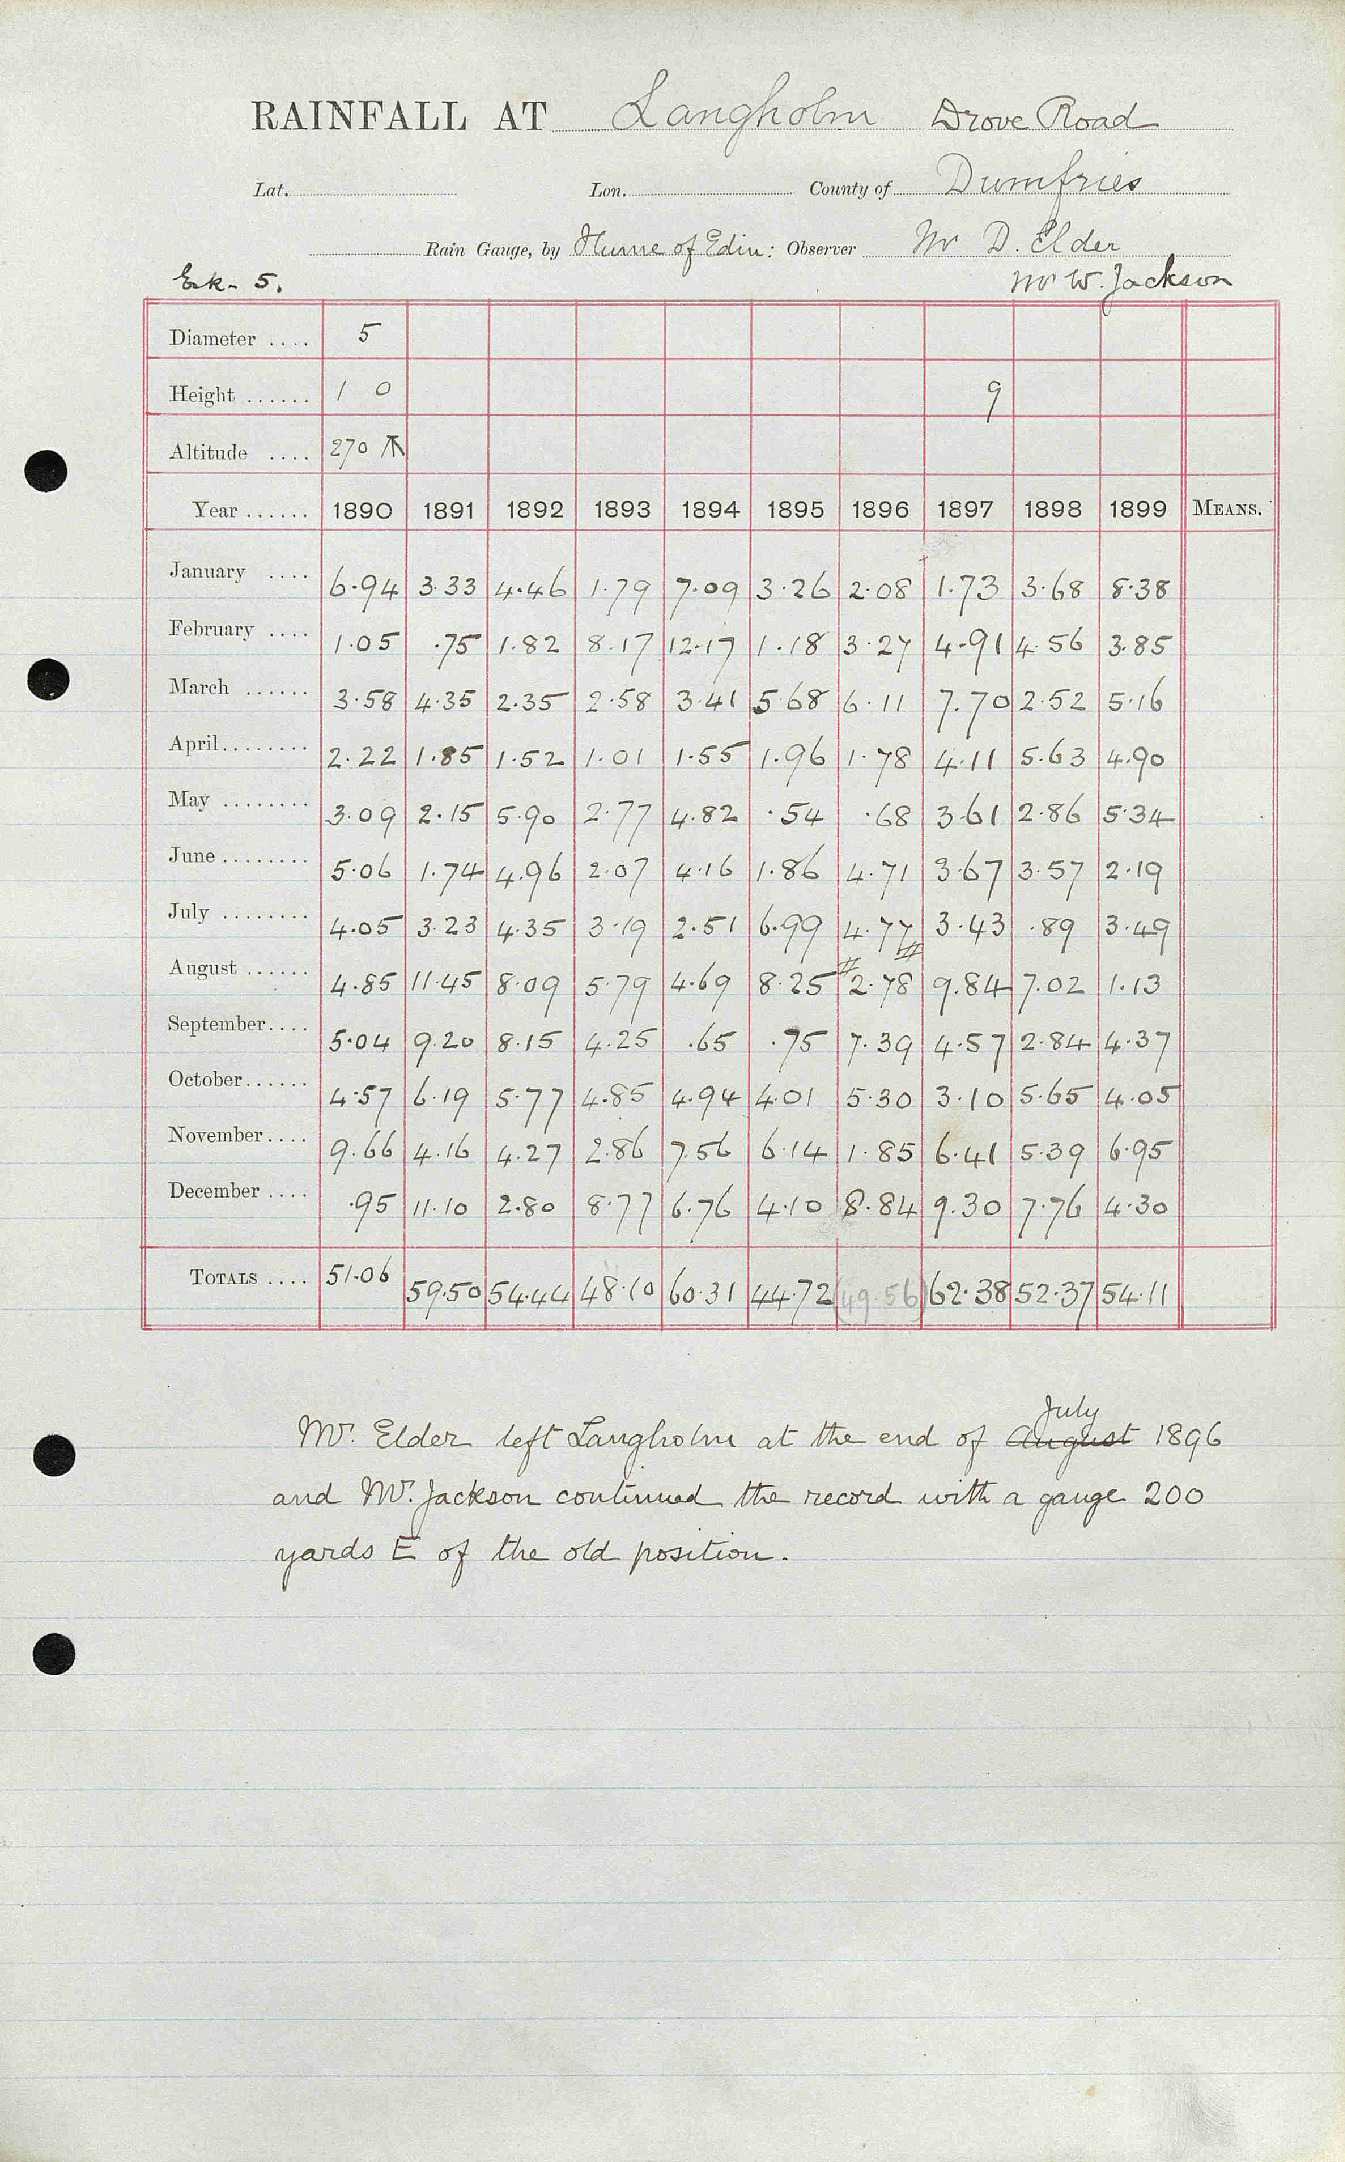 RAINFALL AT Langholm Drove Road
Lat. Lon. County of Dumfries
Rain Gauge, by Hume of Edin: Observer Mr D. Elder
Ek. 5. Mr W. Jackson
Diameter .... 5
Height ...... 1 0 9
Altitude .... 270
Year ...... 1890 1891 1892 1893 1894 1895 1896 1897 1898 1899 MEANS.
January .... 6.94 3.33 4.46 1.79 7.09 3.26 2.08 1.73 3.68 8.38
February .... 1.05 .75 1.82 8.17 12.17 1.18 3.27 4.91 4.56 3.85
March ...... 3.58 4.35 2.35 2.58 3.41 5.68 6.11 7.70 2.52 5.16
April........ 2.22 1.85 1.52 1.01 1.55 1.96 1.78 4.11 5.63 4.90
May ........ 3.09 2.15 5.90 2.77 4.82 .54 .68 3.61 2.86 5.34
June ........ 5.06 1.74 4.96 2.07 4.16 1.86 4.71 3.67 3.57 2.19
July ........ 4.05 3.23 4.35 3.19 2.51 6.99 4.77 3.43 .89 3.49
August ...... 4.85 11.45 8.09 5.79 4.69 8.25 2.78 9.84 7.02 1.13
September.... 5.04 9.20 8.15 4.25 .65 .75 7.39 4.57 2.84 4.37
October...... 4.57 6.19 5.77 4.85 4.94 4.01 5.30 3.10 5.65 4.05
November.... 9.66 4.16 4.27 2.86 7.56 6.14 1.85 6.41 5.39 6.95
December .... .95 11.10 2.80 8.77 6.76 4.10 8.84 9.30 7.76 4.30
TOTALS .... 51.06 59.50 54.44 48.10 60.31 44.72 (49.56) 62.38 52.37 54.11
July
Mr. Elder left Langholm at the end of August 1896
and Mr. Jackson continued the record with a gauge 200
yards E of the old position.